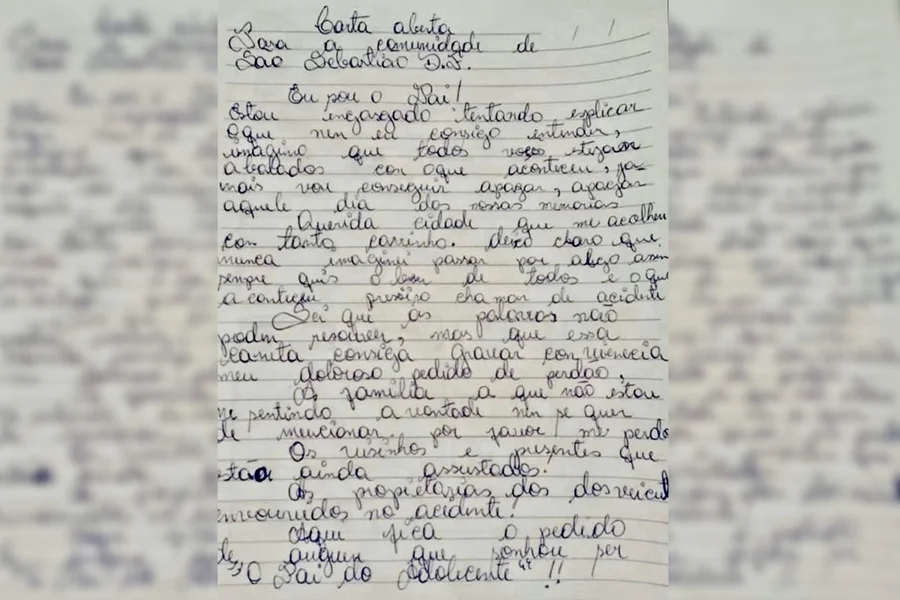 Carta aberta
Para a comunidade de
São Sebastião D.F.
Eu sou o Pai!
Estou engasgado tentando explicar
oque nem eu consigo entender,
imagino que todos voces
abalados con oque aconteceu, ja-
mais vou conseguir apagar, apagar
aquele dia das nossas memorias
Querida cidade que me acolheu
con tanto carinho. deixo claro que
nunca imaginei passar por algo assim
sempre quis o bem de todos e oque
aconteceu preciso chamar de acidente
Sei que as palavras não
podem resolver, mas que essa
carta consiga gravar
meu doloroso pedido de perdão,
A familia a que não estou
me sentindo a vontade nem se quer
de mencionar. por favor me perdo
Os visinhos e presentes que
estão ainda assustados!
As dos dos
no acidente!
Aqui fica o pedido
de auguen que sonhou ser
"O Pai do Adolecente" !!